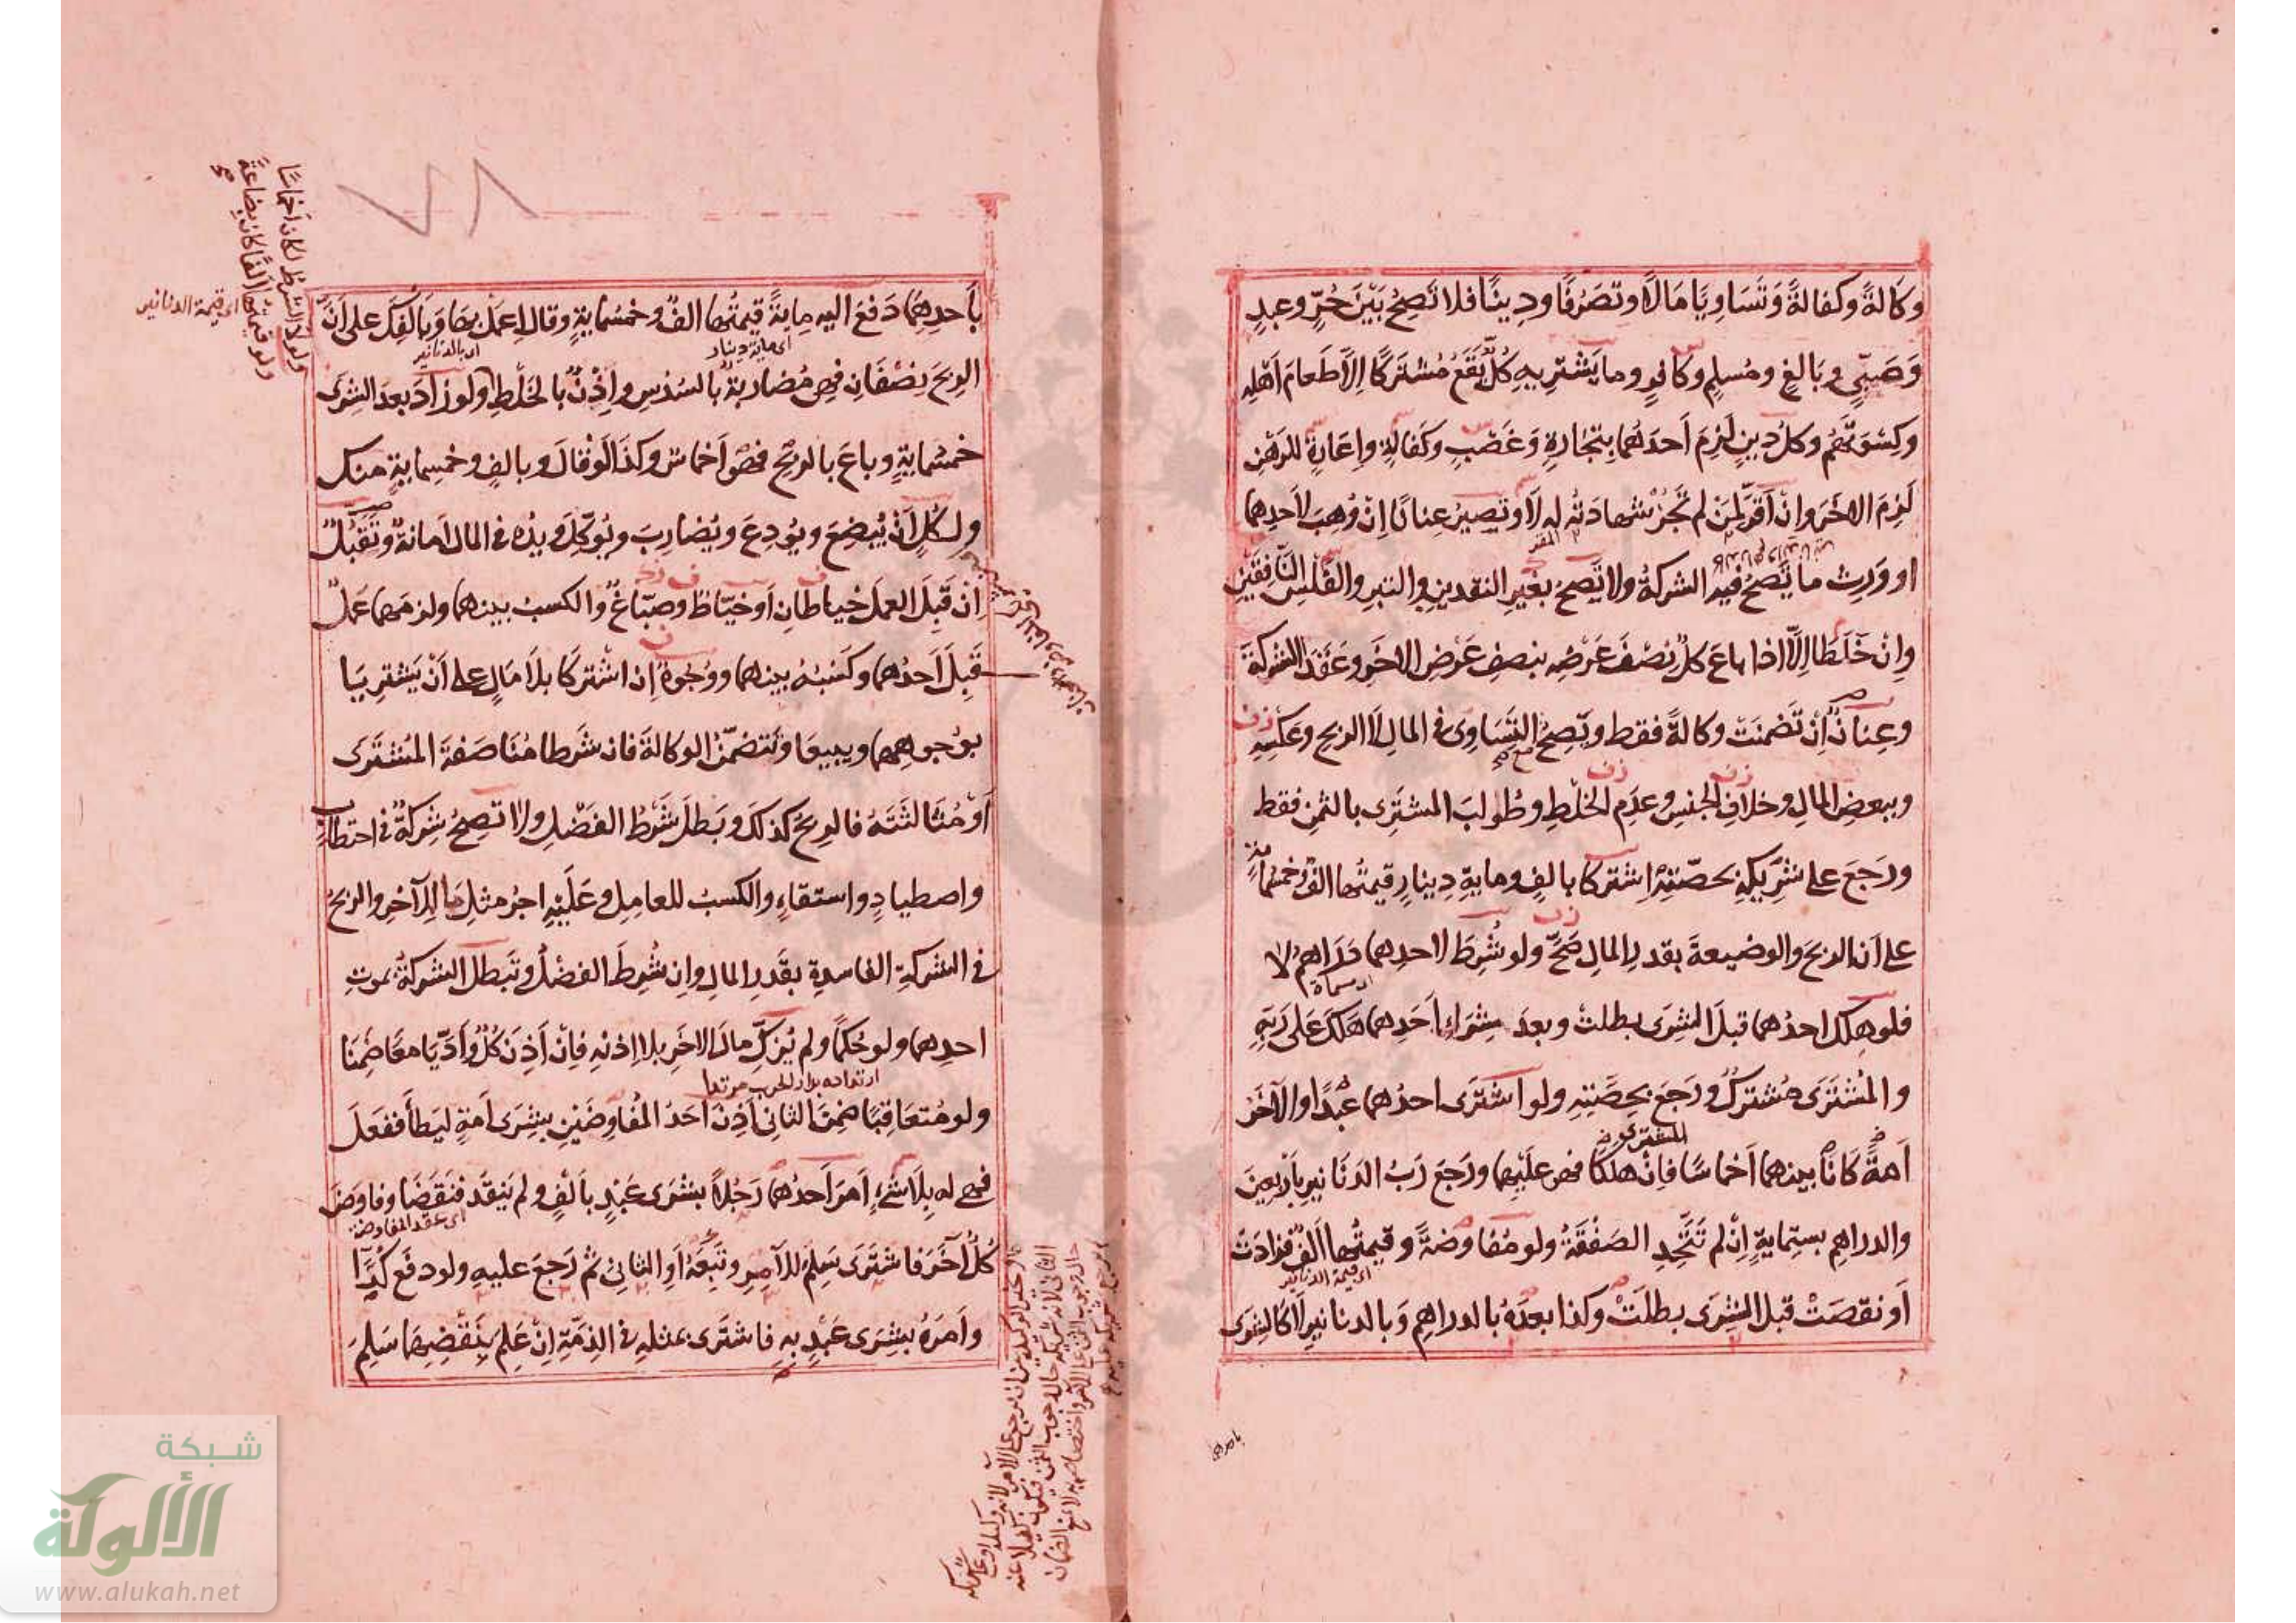 وكالةً وكفالةً وتَسَاوِيَا مَالًا وتصرُفًا ودِينًا فلا تصِحُ بَيْنَ حُرٍّ وعبدٍ
وَصَبِيٍّ وبَالغٍ ومُسلِمٍ وكافرٍ وما يَشترِيهِ كُلٌّ يَقَعُ مُشتَركًا اِلّا طَعامَ اَهْلِهِ
وكِسْوَتَهُمْ وكل دينٍ لَزِمَ اَحدَهُما بتِجَارةٍ وَغَصْبٍ وكَفالةٍ واِعَارةٍ للرَهْنِ
لَزِمَ الاخَرَ وانْ اَقرَّ لمَنْ لم تَجُزْ شهادَتُه له لَا وتصيرُ عِنانًا اِنْ وُهِبَ لاَحدِهما
المقر
او وَرِث ما تَصحُ فيه الشركةُ ولا تَصحُ بغَيرِ النقدينِ والتبرِ والفَلْسِ النّافِقَيْنِ
وانْ خَلَطَا اِلّا اذا باعَ كلٌ نصْفَ عَرْضِه بنصفِ عَرْضِ الاخَرِ وعَقَدَا الشركةَ
وعِنانٌ اِنْ تَضَمنَتْ وكالةً فقط وتصِحُ مع التَسَاوِى فى المالِ لا الربحِ وعَكسِهِ
وببعضِ المالِ وخلافِ الجنسِ وعدَمِ الخَلْطِ وطُولبَ المشترِى بالثمنِ فقط
ورَجَعَ على شَرِيكِهِ بحصّتِهِ اِشتركا بالفٍ ومايةِ دينارٍ قيمتُها الفٌ وخمسُمايةٍ
على اَن الربحَ والوضيعةَ بقدرِ المالِ صَحَّ ولو شُرِطَ لاحدِهما دَرَاهمُ لا
اى مسماة
فلو هلك احدُهما قبلَ الشرَى بطلتْ وبعدَ شِرَاءِ اَحَدِهما هَلَكَ عَلى رَبِّهِ
والمُشتَرَى مُشتركٌ ورَجَعَ بحِصَّتِهِ ولو اشترَى احدُهما عبْدًا والآخَرُ
اَمةً كَانَا بينهما اَخماسًا فاِنْ هلكَا فهو عليْهِما ورَجَعَ رَبُ الدنَانيرِ باَرْبعينَ
المشترى
والدراهمِ بستِمايةٍ اِنْ لم تَتَّحِدِ الصَفْقَةُ ولو مُفاوضةً وقيمتُها اَلفٌ فزادَتْ
اى قيمة الدنانير
اَو نقصَتْ قبل الشِرَى بطلَتْ وكذا بعدَهُ بالدراهمِ وَبالدنانيرِ لَا كالشِرَى
باحدهما
باَحدِهِمَا دَفعَ اليه مِايةً قيمتُها الفٌ وخمسُمايةٍ وقال اِعمَلْ بها وَبالفِكَ على اَنّ
اى ماية دينار
اى بالدنانير
الربحَ نِصْفَانِ فهى مُضاربةٌ بالسُدْسِ واِذْنٌ بالخَلْطِ ولو زادَ بعدَ الشِرَى
خمسُمايةٍ وباعَ بالربحِ فهو اَخماسٌ وكذَا لَوْ قالَ وبالفٍ وخمسِمايةٍ منك
ولكُلٍ اَنْ يُبْضِعَ ويُودِعَ ويُضارِبَ ويُوَكِّلَ ويدُه فى المال اَمانةٌ وتَقَبُّلٌ
اِن قَبِلَ العملَ خياطانِ اَو خيّاطٌ وصبّاغٌ والكسبُ بينهما ولزمَهما عَمَلٌ
قَبِلَ اَحدُهما وكَسْبُهُ بينهما ووُجُوهٌ اِن اشتَركَا بلَا مَالٍ على اَنْ يَشترِيَا
بوُجوهِهما ويبيعَا وتتضمّنُ الوكالةَ فان شَرطا مُنَاصَفةَ المُشتَرَى
اَوْ مُثَالثَتَهُ فالربحُ كذلكَ وبَطلَ شَرْطُ الفَضْلِ ولا تصِحُ شركةٌ فى احتطابٍ
واصطيادٍ واستقاءٍ والكسبُ للعامِلِ وعَلَيْهِ اجرُ مثلِ ما للآخَرِ والربحُ
فى الشركةِ الفاسدةِ بقَدرِ المالِ واِن شُرِطَ الفضلُ وتَبطلُ الشركةُ بموتِ
احدِهما ولو حُكمًا ولم يُزكِّ مالَ الاخَرِ بلا اِذنِهِ فاِنْ اَذِنَ كُلٌ واَدّيَا معًا ضَمِنَا
ارتداده بدار الحرب مرتدا
ولو مُتعَاقِبًا ضَمِنَ الثانى اَذِنَ اَحَدُ المُفاوِضَيْنِ بشِرَى اَمةٍ ليَطأَ ففعَلَ
فهى له بِلَا شىْءٍ اَمرَ اَحدُهما رَجُلًا بشرَى عَبْدٍ باَلْفٍ ولم يَنقُد فنَقَضَا وفاوضَ
اى عقد المفاوضة
كُلٌ آخَرَ فاشترَى سَلِمَ للآمِرِ وتَبِعَهُ اَو الثانىَ ثم رَجعَ عليهِ ولو دفعَ كُرًّا
واَمرَهُ بشِرَى عَبْدٍ بهِ فاشترَى بمثلهِ فى الذِمّةِ اِنْ عَلِمَ بِنَقْضِهِمَا سَلِمَ
ولولا الشرط لكان اخماسًا
ولو قيمتها الفًا كان بضاعةً
اى قيمة الدنانير
٧٨
شبكة
الألوكة
www.alukah.net